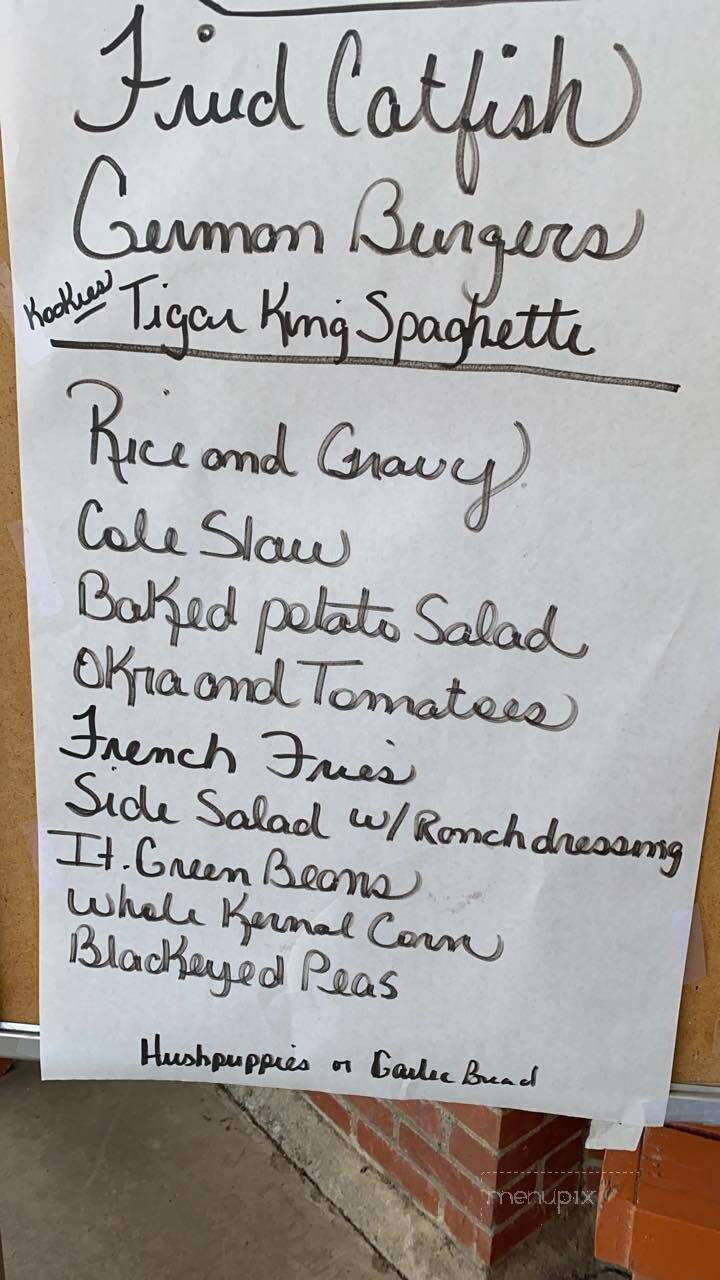 Fried Catfish
German Burgers
Kookies Tigar King Spaghetti
Rice and Gravy
Cole Slaw
Baked potato Salad
Okra and Tomatoes
French Fries
Side Salad w/Ranch dressing
It. Green Beans
Whole Kernal Corn
Blackeyed Peas
Hushpuppies or Garlic Bread
menupix